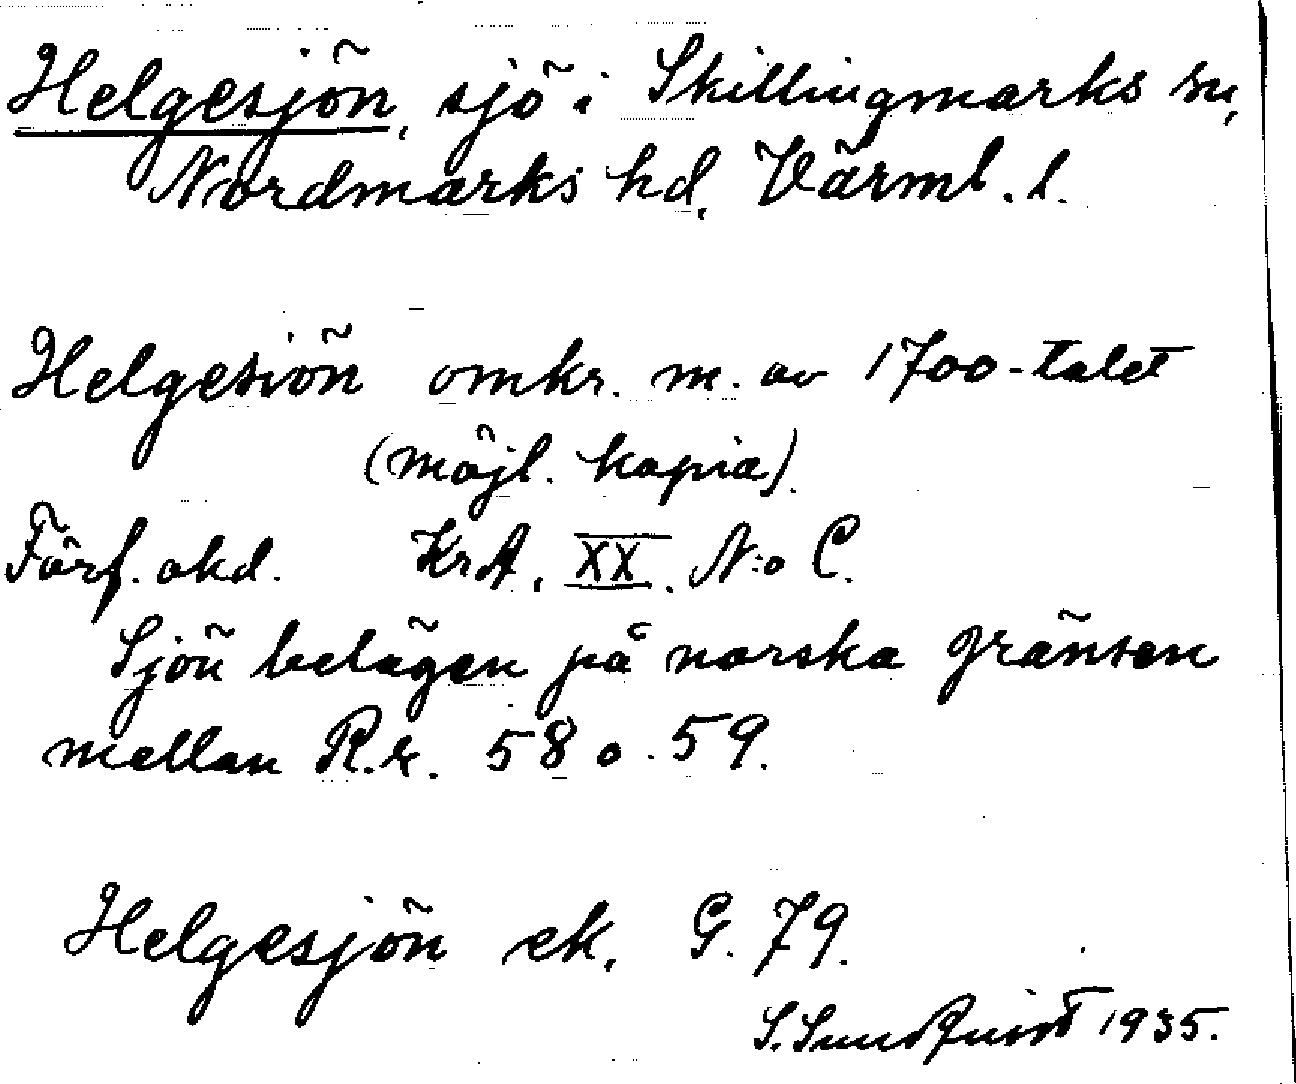 Helgesjön, sjö i Skillingmarks sn,
Nordmarks hd, Värml. l.
Helgesiön omkr. m. av 1700-talet
(möjl. kopia).
Förf. okd. KrA, XX. N:o C.
Sjön belägen på norska gränsen
mellan R.r. 58 o. 59.
Helgesjön ek. G. 79.
S. Sundquist 1935.